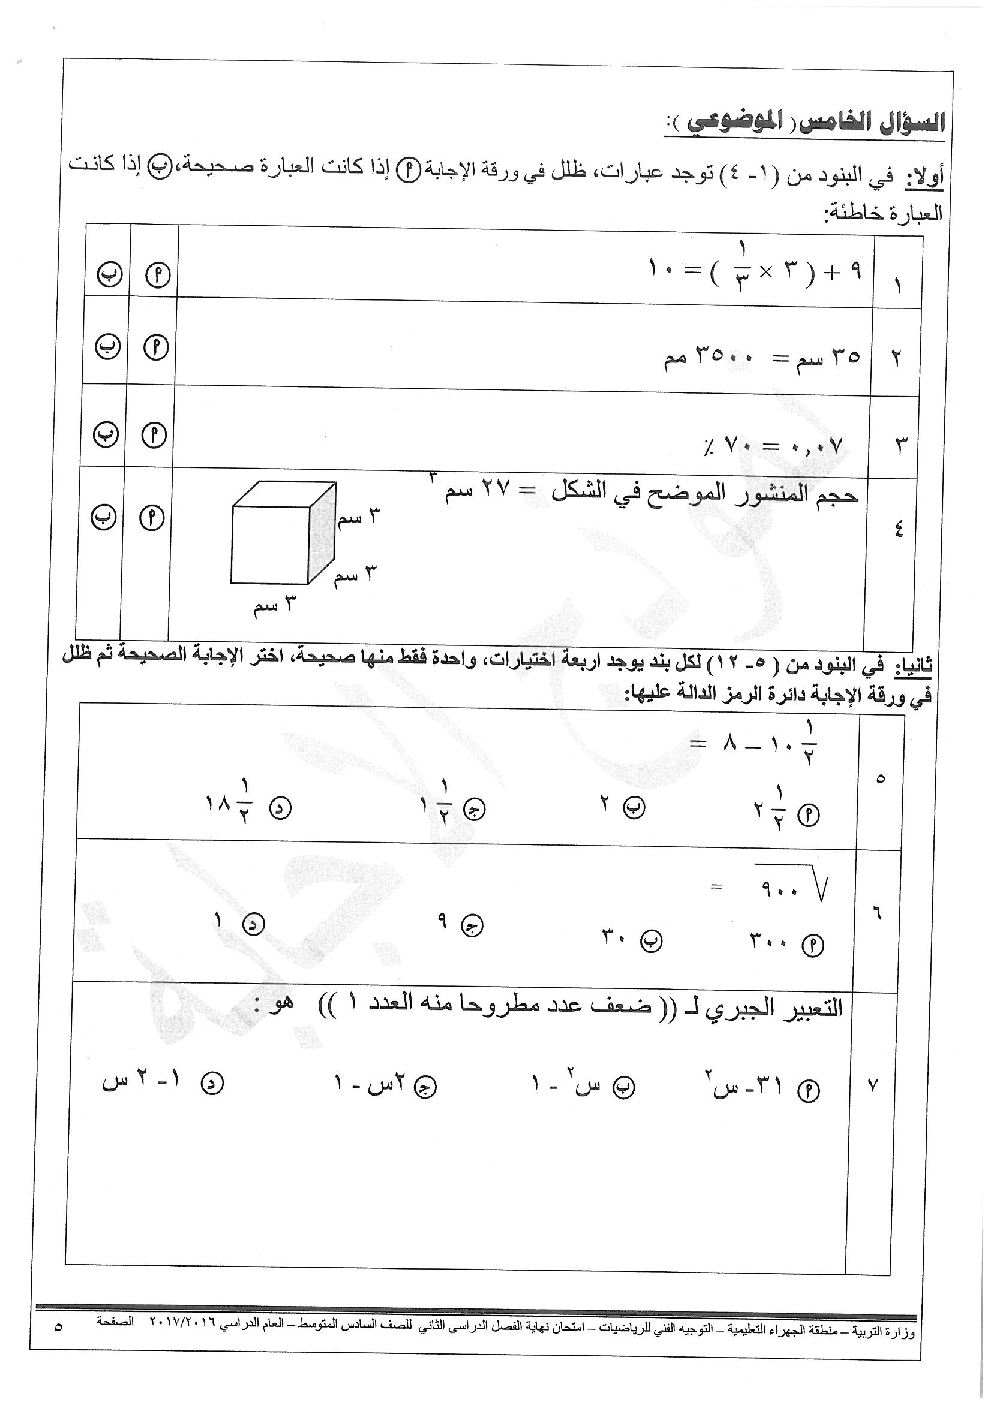 السؤال الخامس( الموضوعي ):
أولا: في البنود من (١- ٤) توجد عبارات، ظلل في ورقة الإجابة (م) إذا كانت العبارة صحيحة، (ب) إذا كانت
العبارة خاطئة:
١ ٩ + ( ٣ × ١/٣ ) = ١٠ (م) (ب)
٢ ٣٥ سم = ٣٥٠٠ مم (م) (ب)
٣ ٠,٠٧ = ٧٠ ٪ (م) (ب)
٤ حجم المنشور الموضح في الشكل = ٢٧ سم ٣ (م) (ب)
٣ سم
٣ سم
٣ سم
ثانيا: في البنود من ( ٥- ١٢) لكل بند يوجد اربعة اختيارات، واحدة فقط منها صحيحة، اختر الإجابة الصحيحة ثم ظلل
في ورقة الإجابة دائرة الرمز الدالة عليها:
٥ ١٠ ١/٢ – ٨ =
(م) ٢ ١/٢ (ب) ٢ (ج) ١ ١/٢ (د) ١٨ ١/٢
٦ √٩٠٠ =
(م) ٣٠٠ (ب) ٣٠ (ج) ٩ (د) ١
٧ التعبير الجبري لـ (( ضعف عدد مطروحا منه العدد ١ )) هو :
(م) ٣١- س٢ (ب) س٢ - ١ (ج) ٢س - ١ (د) ١- ٢ س
وزارة التربية – منطقة الجهراء التعليمية – التوجيه الفني للرياضيات – امتحان نهاية الفصل الدراسي الثاني للصف السادس المتوسط – العام الدراسي ٢٠١٧/٢٠١٦ الصفحة ٥
نموذج الإجابة